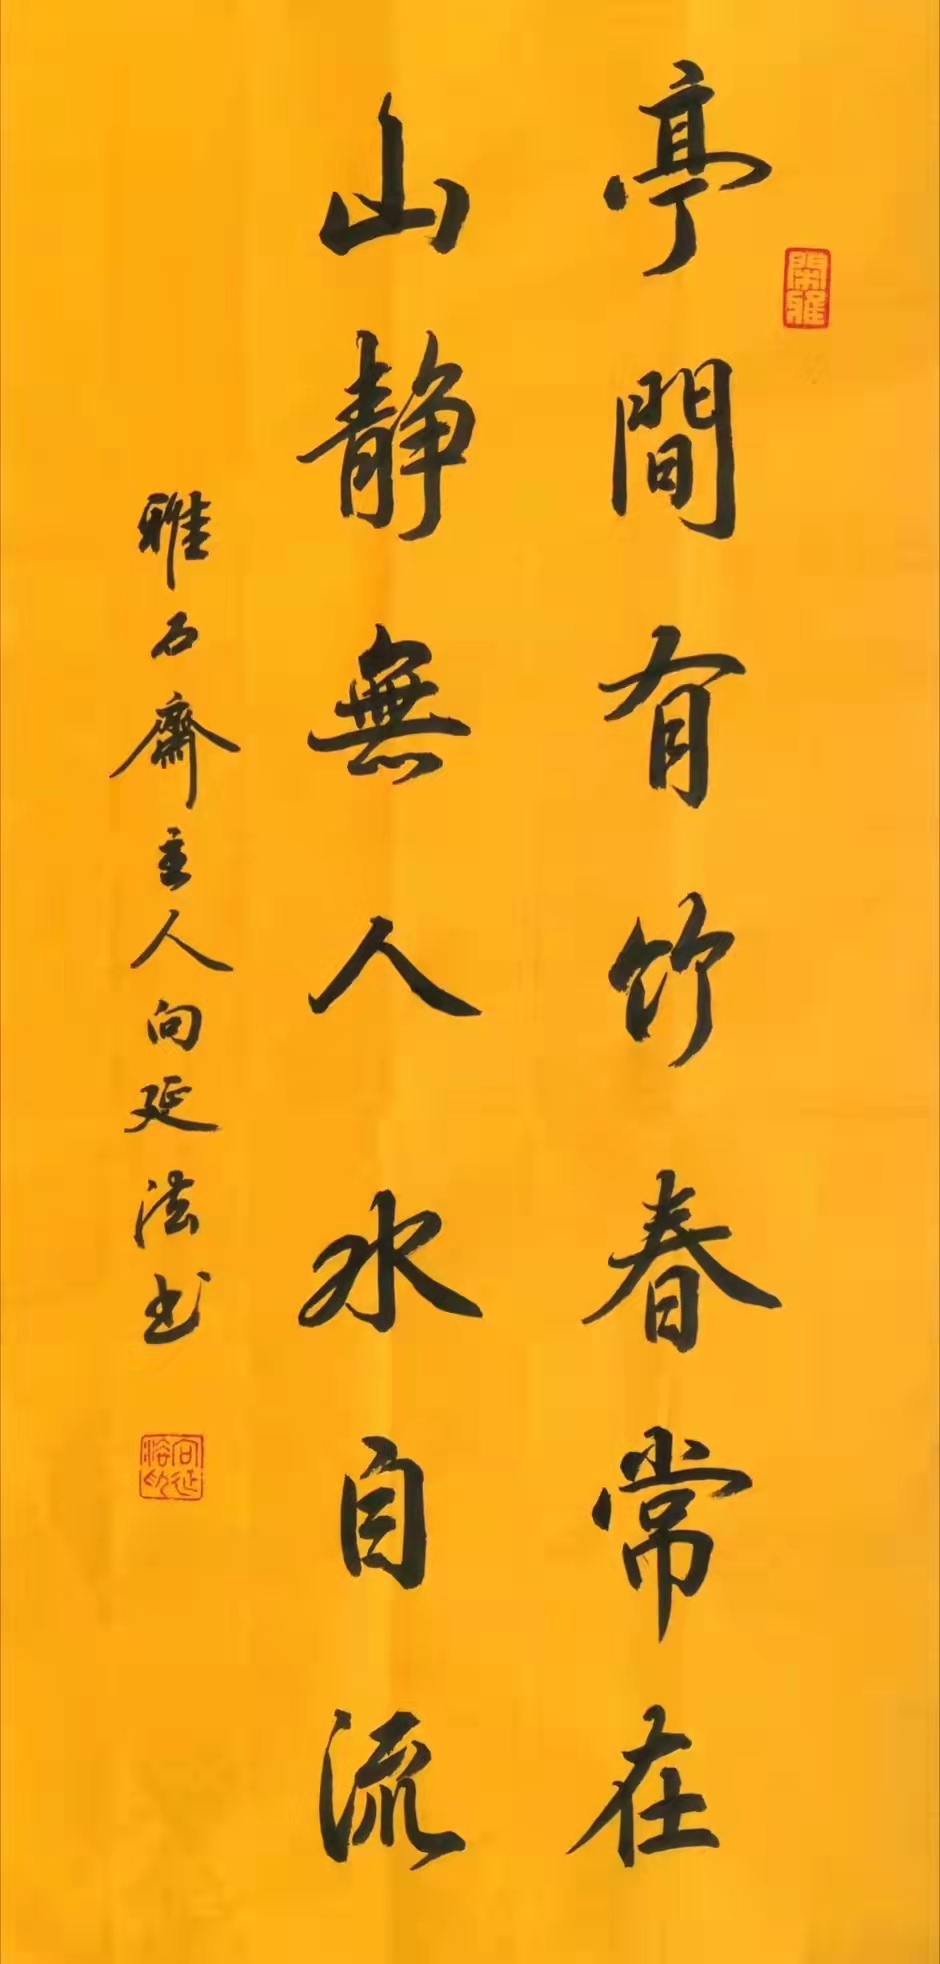 閑雅
亭間有竹春常在
山静無人水自流
雅石齋主人向延法书